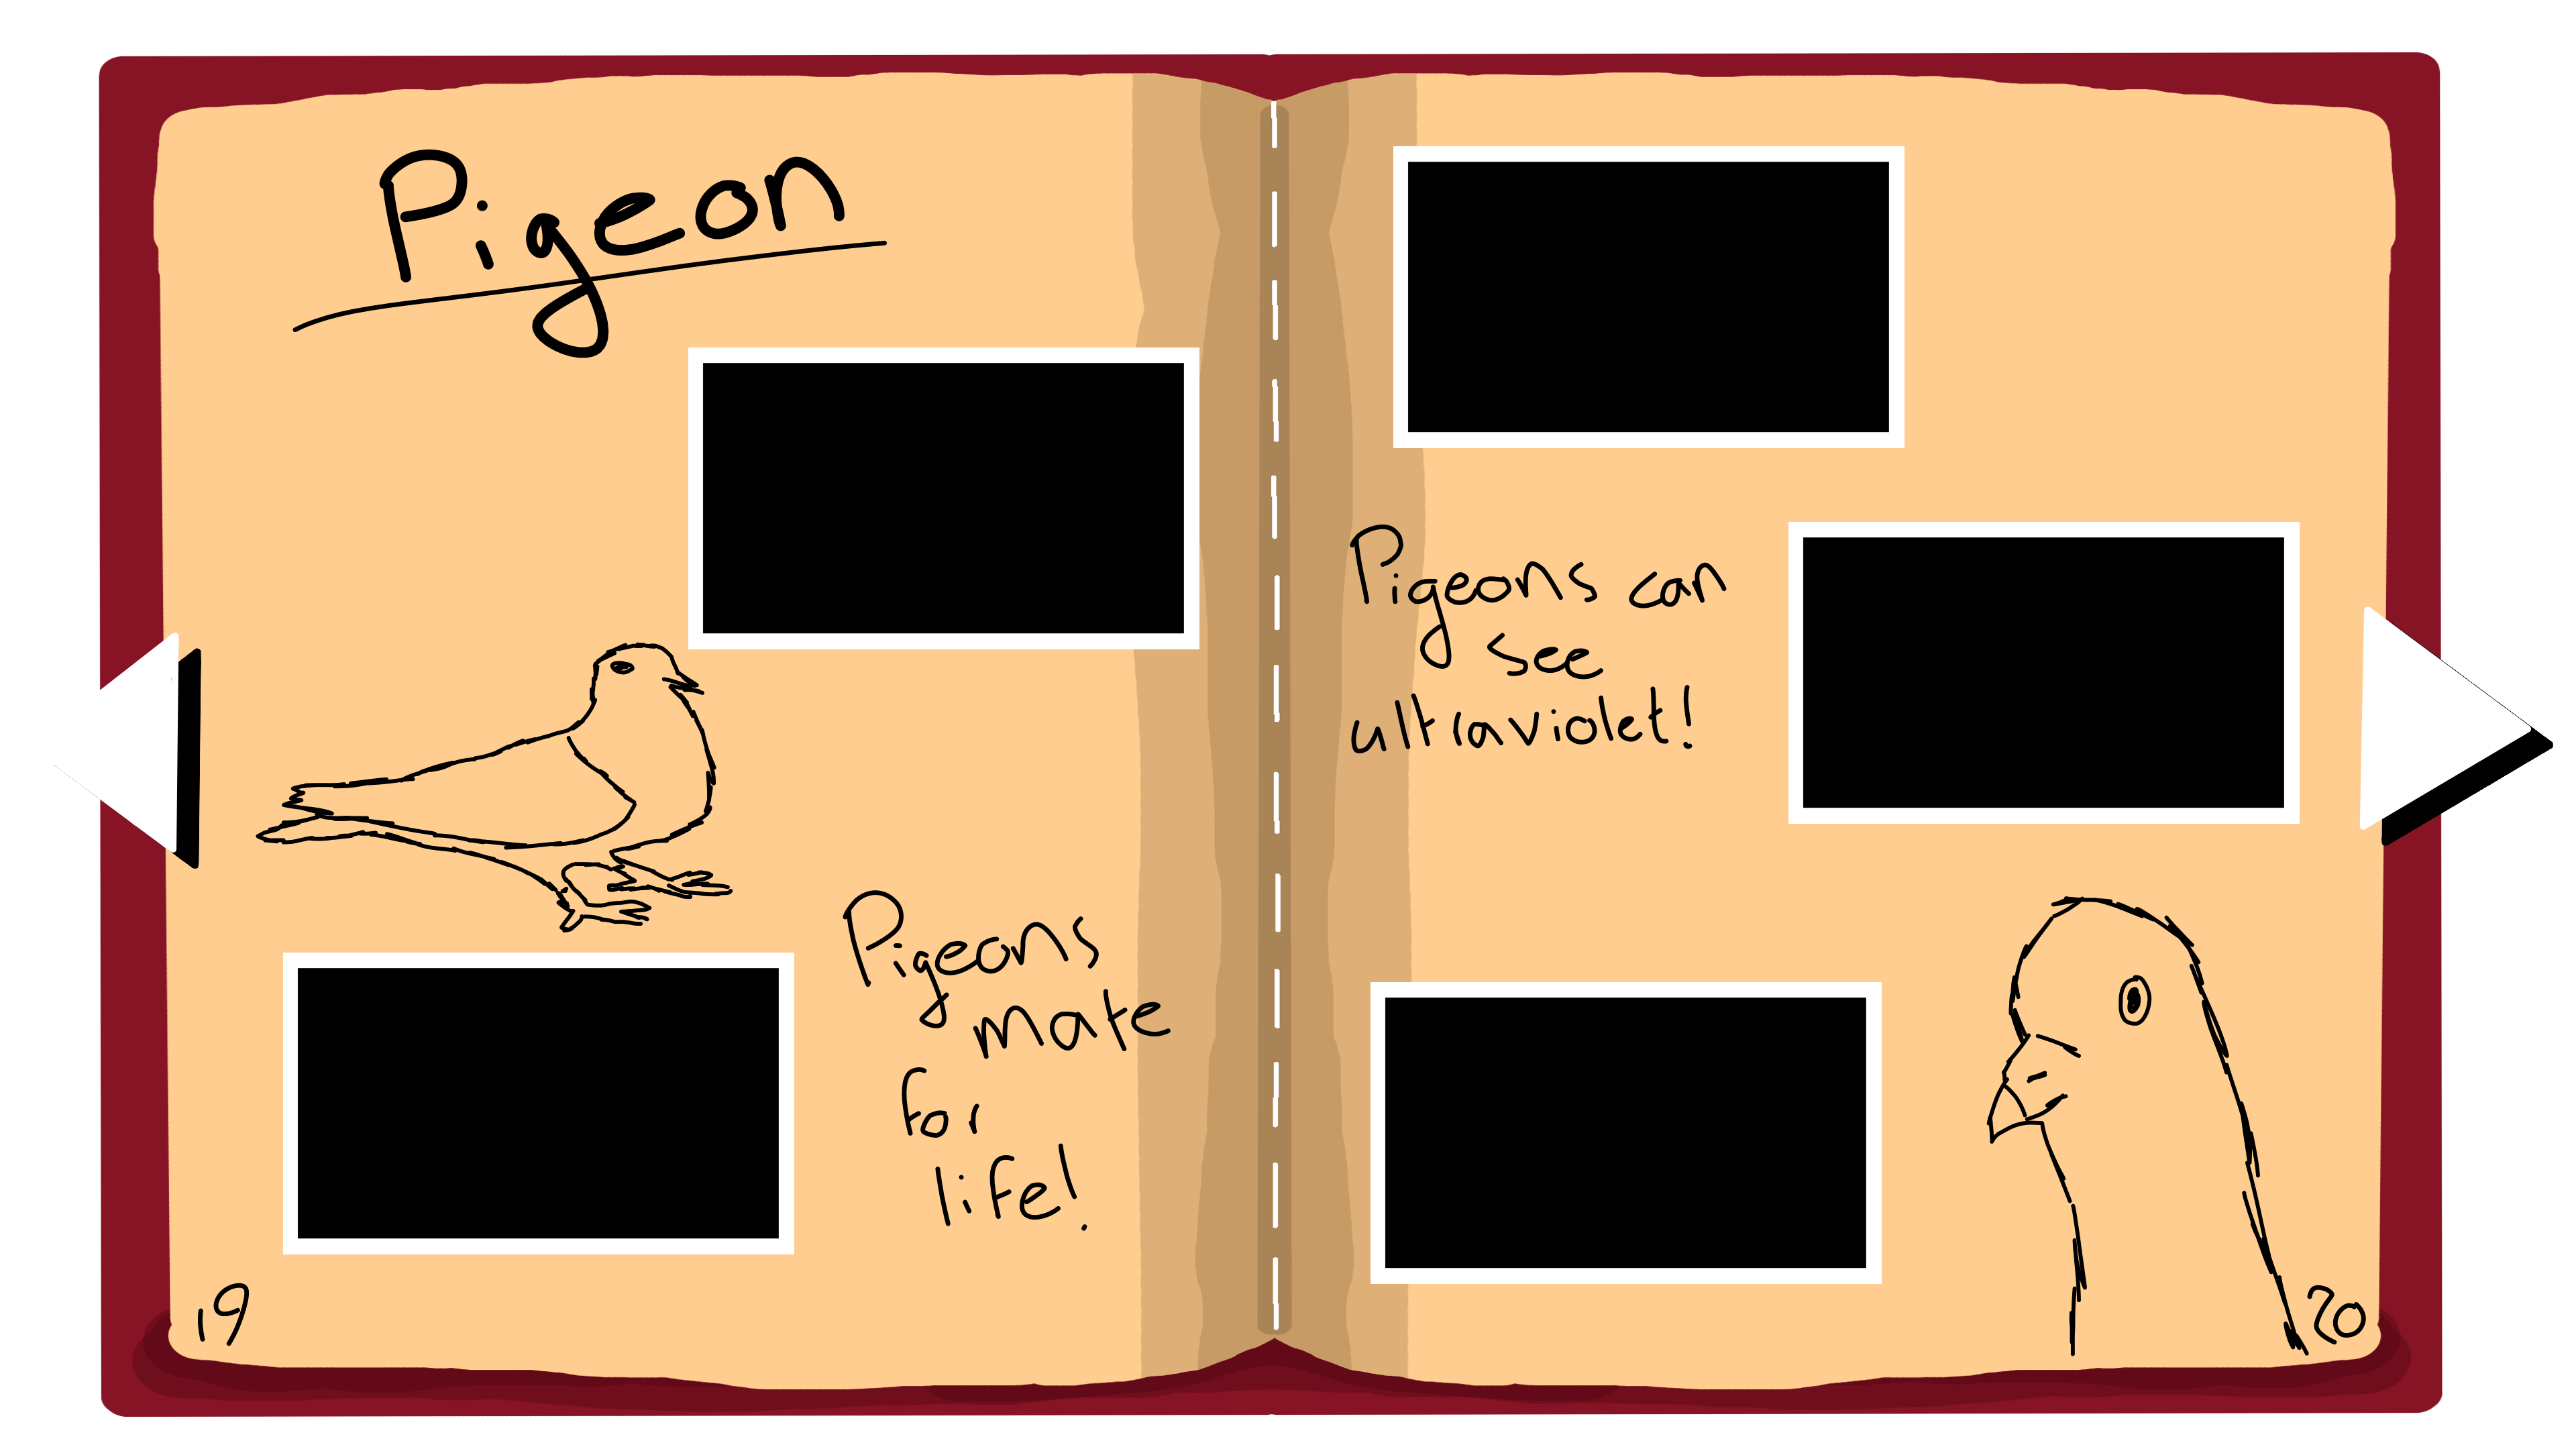 Pigeon
Pigeons
mate
for
life!
19
Pigeons can
see
ultraviolet!
20